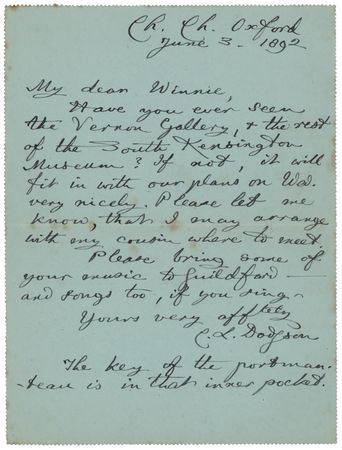 Ch. Ch. Oxford
June 3. 1892
My dear Winnie,
Have you ever seen
the Vernon Gallery, & the rest
of the South Kensington
Museum? If not, it will
fit in with our plans on Wed.
very nicely. Please let me
know, that I may arrange
with my cousin where to meet.
Please bring some of
your music to Guildford —
and songs too, if you sing.
Yours very affctely
C. L. Dodgson
The key of the portman-
-teau is in that inner pocket.